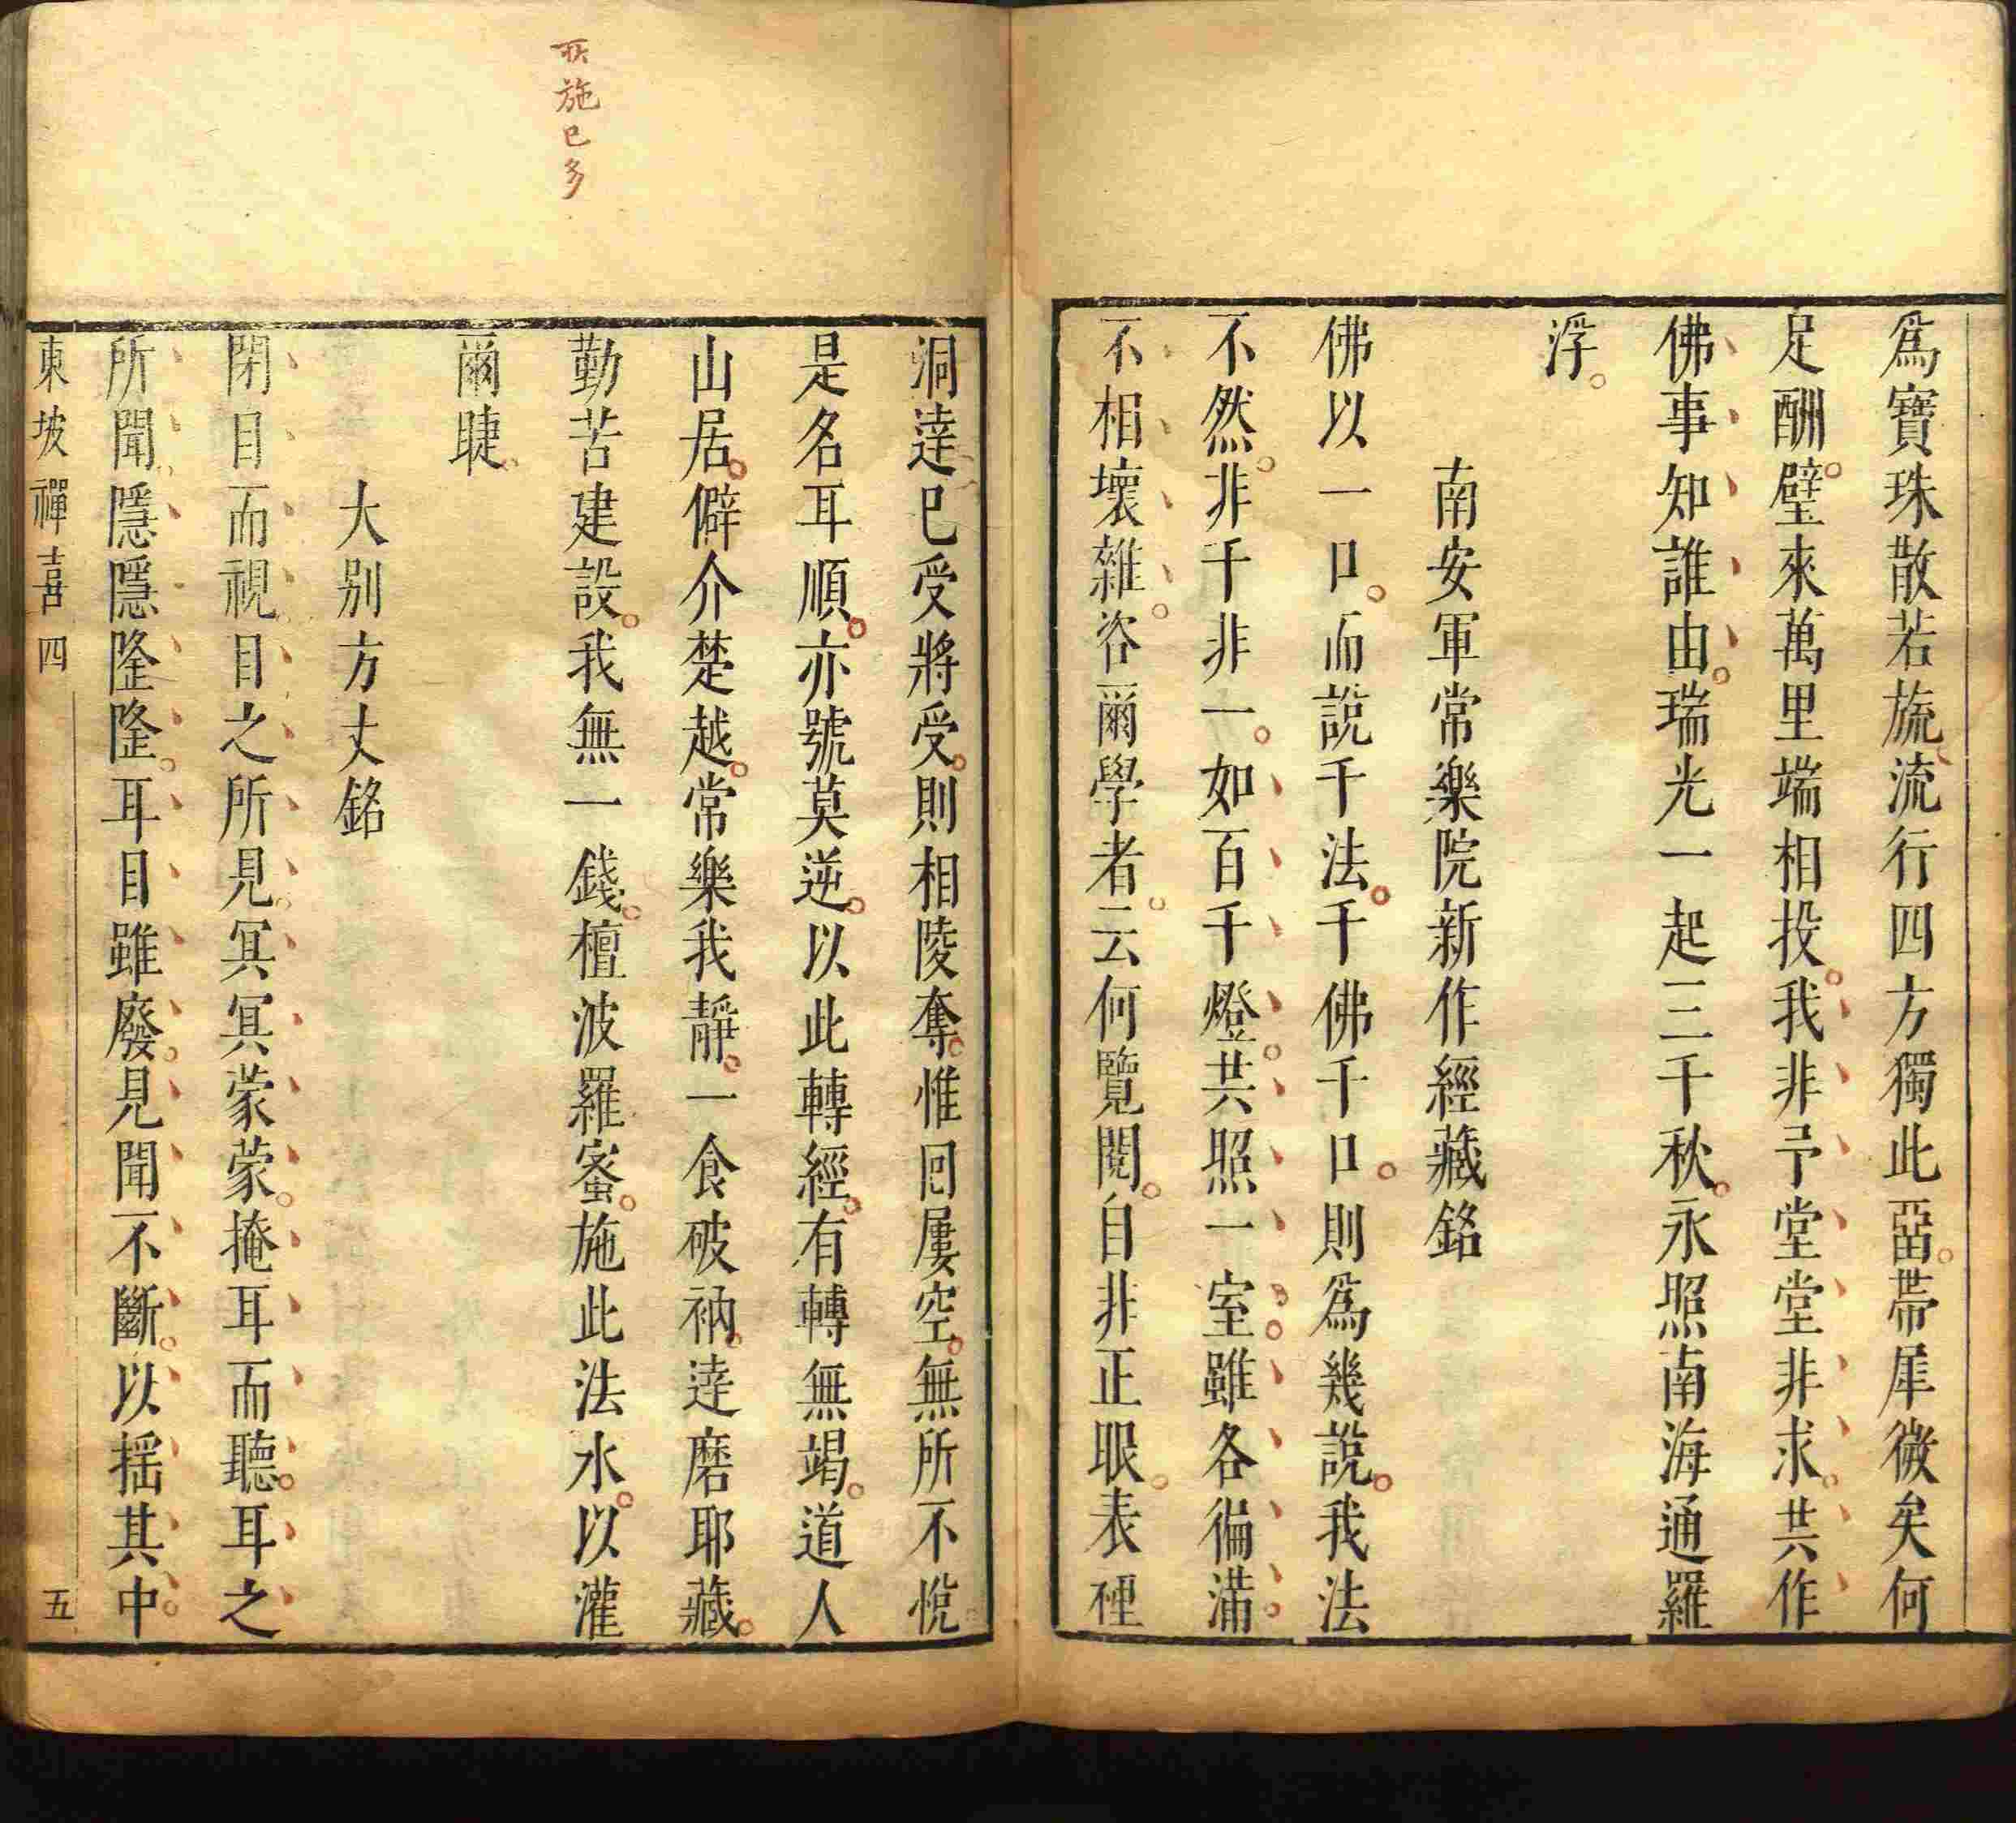 爲寶珠散若旒流行四方獨此㽞帶犀微矣何
足酬璧來萬里端相投我非予堂堂非求共作
佛事知誰由瑞光一起三千秋永照南海通羅
浮
南安軍常樂院新作經藏銘
佛以一口而說千法千佛千口則爲幾說我法
不然非千非一如百千燈共照一室雖各徧滿
不相壞雜咨爾學者云何覽閱自非正眼表裡
洞達已受將受則相陵奪惟囘屢空無所不悅
是名耳順亦號莫逆以此轉經有轉無竭道人
山居僻介楚越常樂我靜一食破衲達磨耶藏
勤苦建設我無一錢檀波羅蜜施此法水以灌
爾睫
大别方丈銘
閉目而視目之所見冥冥蒙蒙掩耳而聽耳之
所聞隱隱隆隆耳目雖廢見聞不斷以揺其中
東坡禪喜四
五
所施已多